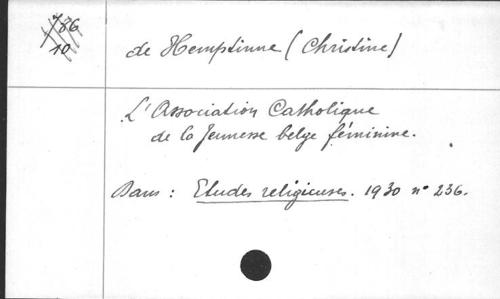 de Hemptinne (Christine)
L'Association Catholique
de la Jeunesse belge féminine.
Dans : Etudes religieuses. 1930 n° 236.